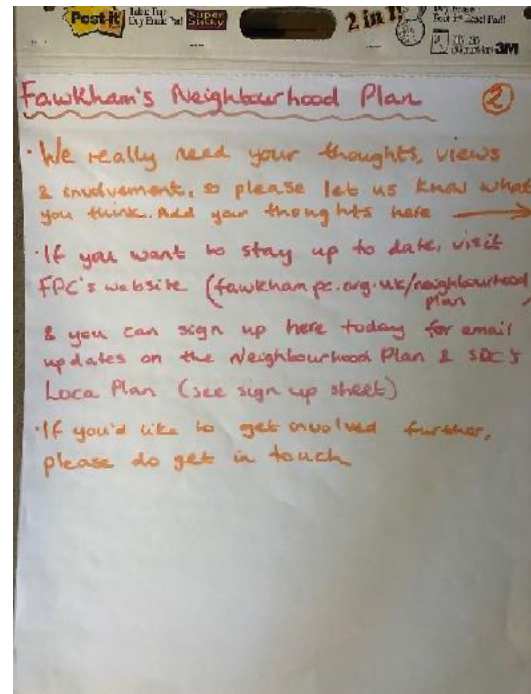 Post-it
Table Top
Dry Erase Pad
Super
Sticky
2 in 1!
3M
Fawkham's Neighbourhood Plan ②
· We really need your thoughts, views
& involvement, so please let us know what
you think. Add your thoughts here →
· If you want to stay up to date, visit
FPC's website (fawkhampc.org.uk/neighbourhood
plan
& you can sign up here today for email
updates on the Neighbourhood Plan & SDC's
Loca Plan (see sign up sheet)
· If you'd like to get involved further,
please do get in touch